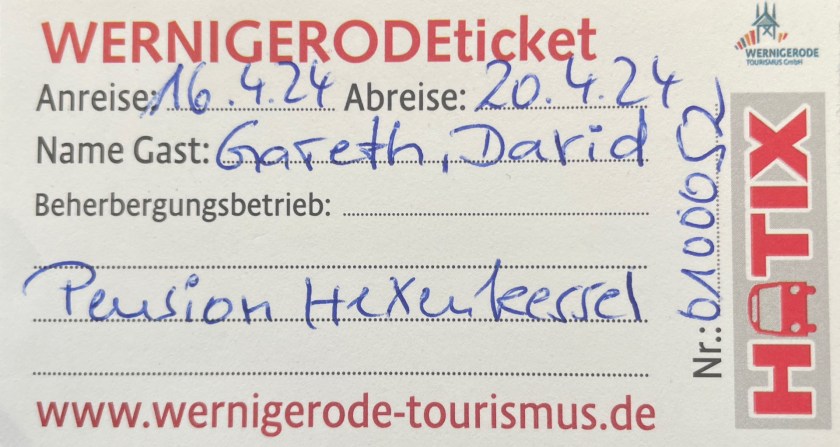 WERNIGERODEticket
WERNIGERODE
TOURISMUS GmbH
Anreise: 16.4.24 Abreise: 20.4.24
Name Gast: Gareth, David
Beherbergungsbetrieb:
Pension Hexenkessel
www.wernigerode-tourismus.de
Nr.:
HATIX